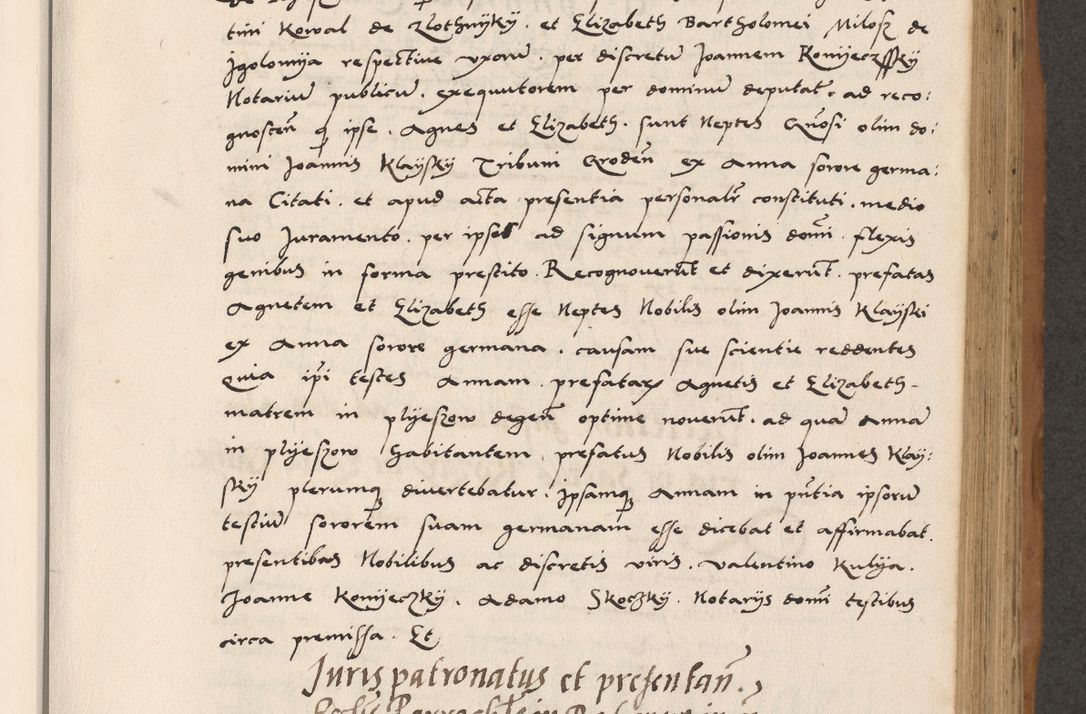 tini Kowal de Zlothnÿkÿ . et Elizabeth Bartholomei Milosz de
Jgolomÿa respectiue vxorũ . per discretũ Joannem Konÿeczffkÿ
Notariũ publicũ . exequutorem per dominũ deputat̃ . ad reco:
gnosceñ q̃ ipse . Agnes et Elizabeth . sunt Neptes Gñosi olim do:
mini Joannis Klaÿskÿ Tribuni Grodeñ ex Anna sorore germa:
na Citati . et apud acta presentia personalr̃ constituti . medio
suo Juramento . per ipsos ad signum passionis domĩ . flexis
genibus in forma prestito . Recognouerũt et dixerũt . prefatas
Agnetem et Elizabeth esse Neptes Nobilis olim Joannis Klaÿski
ex Anna sorore germana . causam sue scientie reddentes
Quia ip̃i testes Annam . prefatarꝝ Agnetis et Elizabeth -
matrem in plÿeszow degeñ optime nouerũt . ad quã Annã
in plÿeszow habitantem . prefatus Nobilis olim Joannes Klaÿ:
skÿ plerumqꝫ diuertebatur . Jpsamqꝫ Annam in pñtia ipsorũ
testiũ sororem suam germanam esse dicebat et affirmabat .
presentibus Nobilibus ac discretis viris . Valentino Kulÿa .
Joanne Konÿeczkÿ . Adamo Skoczkÿ . Notarijs domĩ testibus
circa premissa . Et
Juris patronatus et presentañ .